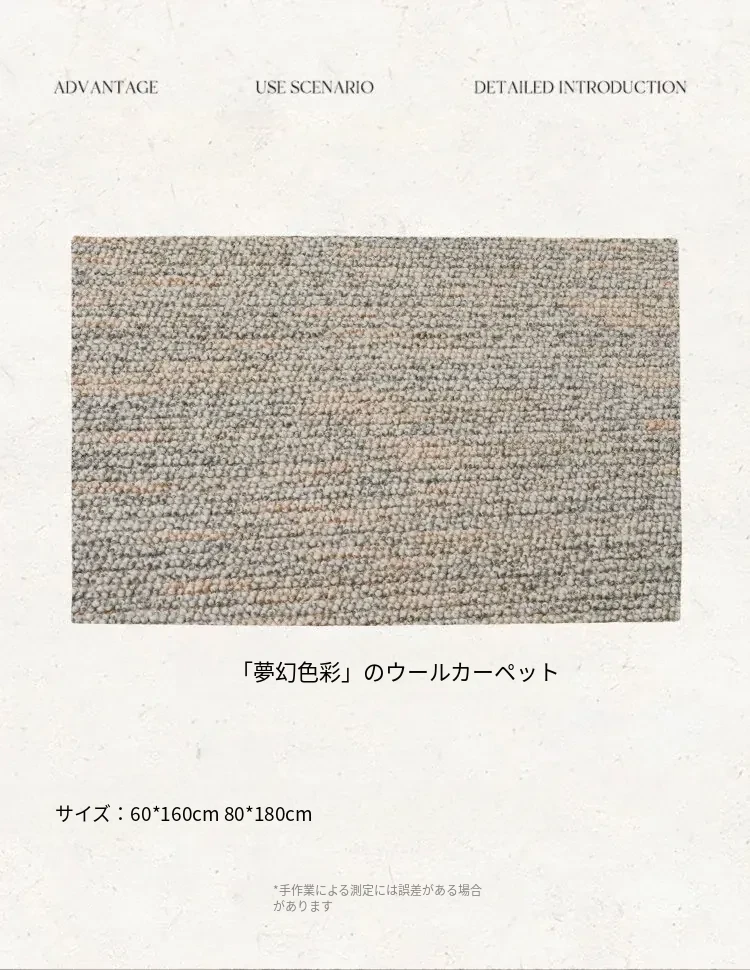 ADVANTAGE USE SCENARIO DETAILED INTRODUCTION
「夢幻色彩」のウールカーペット
サイズ：60*160cm 80*180cm
*手作業による測定には誤差がある場合
があります